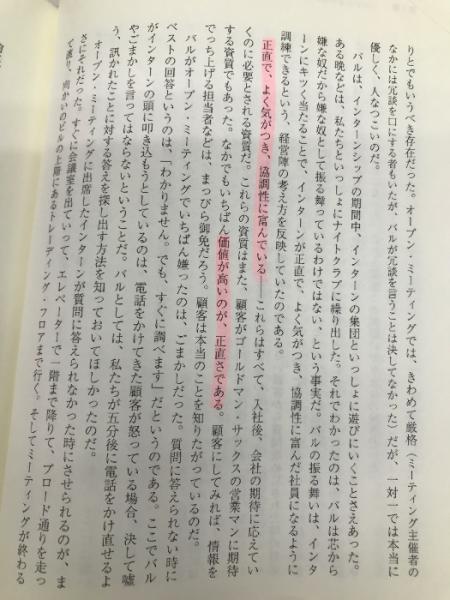 りとでもいうべき存在だった。オープン・ミーティングでは、きわめて厳格（ミーティング主催者の
なかには冗談を口にする者もいたが、バルが冗談を言うことは決してなかった）だが、一対一では本当に
優しく、人なつこいのだ。
バルは、インターンシップの期間中、インターンの集団といっしょに遊びにいくことさえあった。
ある晩などは、私たちといっしょにナイトクラブに繰り出した。それでわかったのは、バルは芯から
嫌な奴だから嫌な奴として振る舞っているわけではない、という事実だ。バルの振る舞いは、インタ
ーンにキツく当たることで、インターンが正直で、よく気がつき、協調性に富んだ社員になるように
訓練できるという、経営陣の考え方を反映していたのである。
正直で、よく気がつき、協調性に富んでいる――これらはすべて、入社後、会社の期待に応えてい
くのに必要とされる資質だ。これらの資質はまた、顧客がゴールドマン・サックスの営業マンに期待
する資質でもあった。なかでもいちばん価値が高いのが、正直さである。顧客にしてみれば、情報を
でっち上げる担当者などは、まっぴら御免だろう。顧客は本当のことを知りたがっているのだ。
バルがオープン・ミーティングでいちばん嫌ったのは、ごまかしだった。質問に答えられない時に
ベストの回答というのは、「わかりません。でも、すぐに調べます」だというのである。ここでバル
がインターンの頭に叩き込もうとしているのは、電話をかけてきた顧客が怒っている場合、決して嘘
やごまかしを言ってはならないということだ。バルとしては、私たちが五分後に電話をかけ直せるよ
う、訊かれたことに対する答えを探し出す方法を知っておいてほしかったのだ。
オープン・ミーティングに出席したインターンが質問に答えられなかった時にさせられるのが、ま
さにそれだった。すぐに会議室を出ていって、エレベーターで一階まで降りて、ブロード通りを走っ
て渡り、向かいのビルの上階にあるトレーディング・フロアまで行く。そしてミーティングが終わる